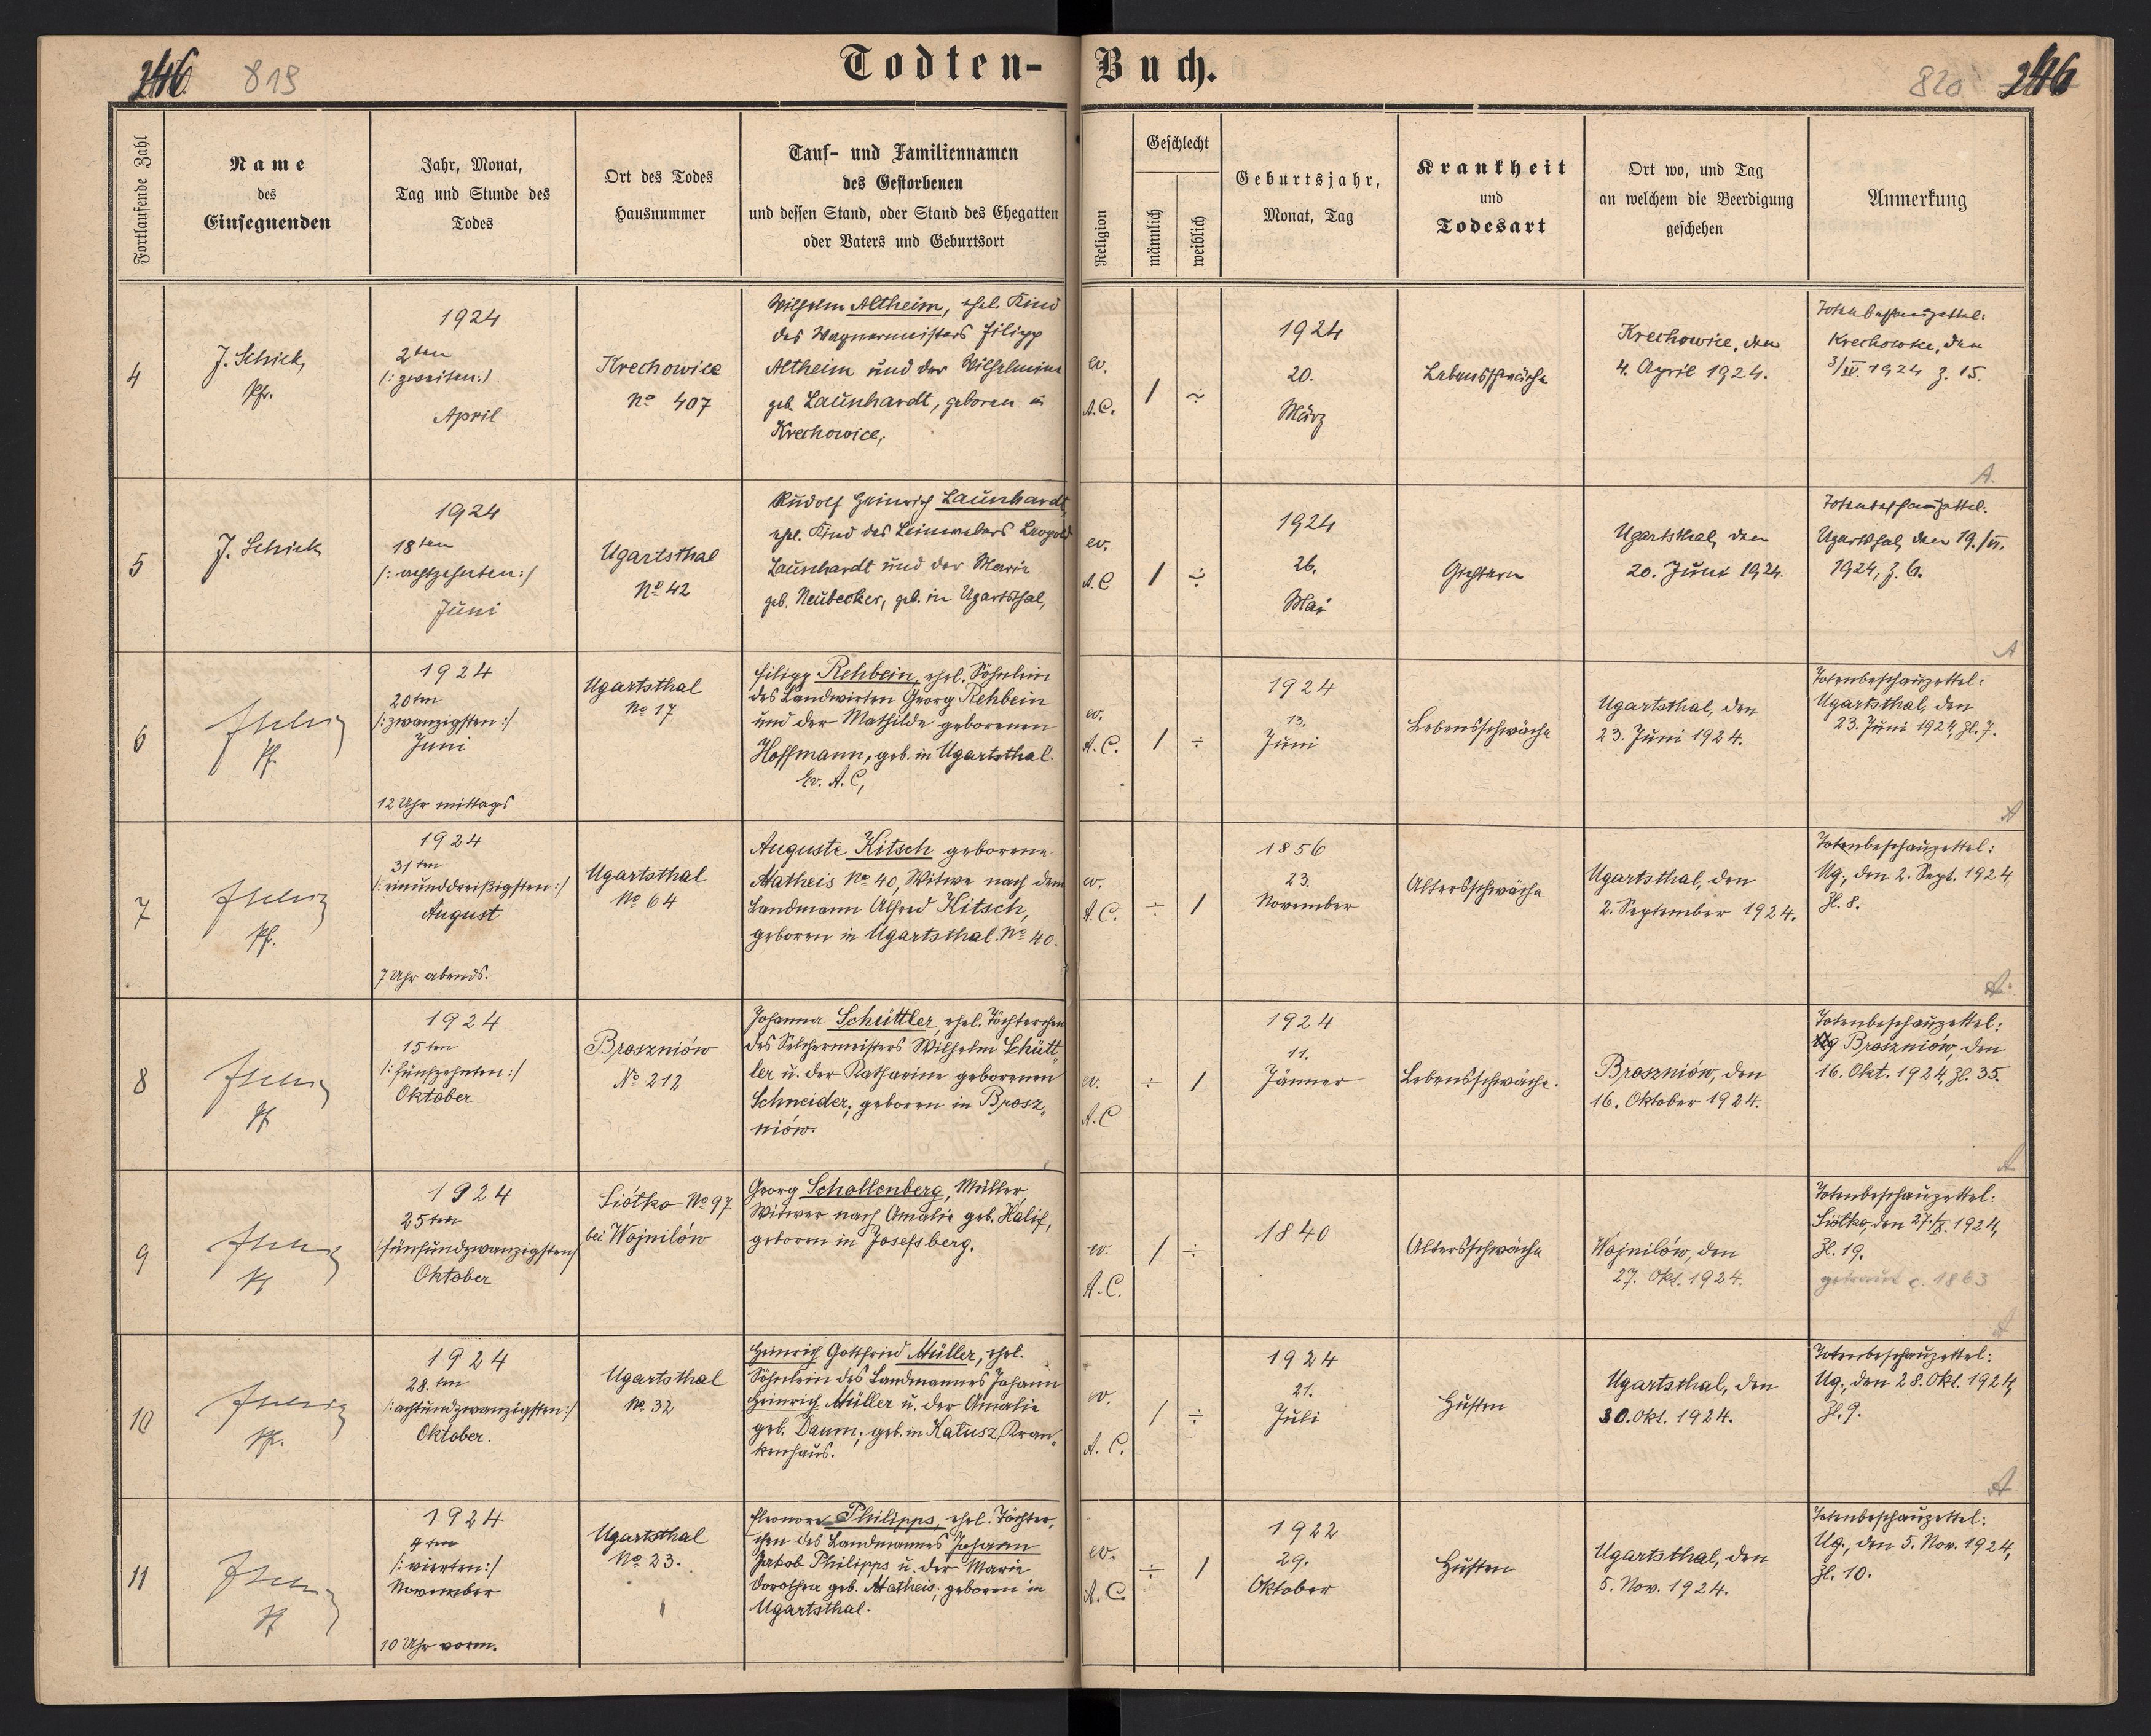 246 819
Todten- Buch.
820 246
Fortlaufende Zahl
Name
des
Einsegnenden
Jahr, Monat,
Tag und Stunde des
Todes
Ort des Todes
Hausnummer
Tauf- und Familiennamen
des Gestorbenen
und dessen Stand, oder Stand des Ehegatten
oder Vaters und Geburtsort
Religion
Geschlecht
männlich
weiblich
Geburtsjahr,
Monat, Tag
Krankheit
und
Todesart
Ort wo, und Tag
an welchem die Beerdigung
geschehen
Anmerkung
4
J. Schick,
Pfr.
1924
2ten
/: zweiten:/.
April
Krechowice
No 407
Wilhelm Altheim, ehel. Kind
des Wagnermeisters Filipp
Altheim und der Wilhelmine
geb. Launhardt, geboren in
Krechowice,
ev.
A.C.
1
÷
1924
20.
März
Lebensschwäche
Krechowice, den
4. April 1924.
Totenbeschauzettel:
Krechowice, den
3/IV. 1924 z. 15.
A.
5
J. Schick
1924
18ten
/: achtzehnten:/
Juni
Ugartsthal
No 42
Rudolf Heinrich Launhardt,
ehel. Kind des Leinwebers Leopold
Launhardt und der Maria
geb. Neubecker, geb. in Ugartsthal,
ev.
A.C
1
÷
1924
26.
Mai
Gichtern
Ugartsthal, den
20. Juni 1924.
Totenbeschauzettel.
Ugartsthal, den 19./VI.
1924, z. 6.
A
6
Pf.
1924
20ten
/: zwanzigsten :/
Juni
12 Uhr mittags
Ugartsthal
No 17
Filipp Rehbein, ehel. Söhnlein
des Landwirten Georg Rehbein
und der Mathilde geborenen
Hoffmann, geb. in Ugartsthal.
Ev. A. C,
ev.
A. C.
1
÷
1924
13.
Juni
Lebensschwäche
Ugartsthal, den
23. Juni 1924.
Totenbeschauzettel:
Ugartsthal, den
23. Juni 1924, Zl. 7.
A
7
Pf.
1924
31ten
/: einunddreißigsten :/
August
7 Uhr abends.
Ugartsthal
No 64
Auguste Kitsch geborene
Matheis No 40, Witwe nach dem
Landmann Alfred Kitsch,
geboren in Ugartsthal. No 40.
ev.
A.C.
÷
1
1856
23.
November
Altersschwäche
Ugartsthal, den
2. September 1924.
Totenbeschauzettel:
Ug., den 2. Sept. 1924,
Zl. 8.
A.
8
Pf
1924
15ten
/: fünfzehnten :/
Oktober
Broszniów
No 212
Johanna Schüttler, ehel. Töchterchen
des Selchermeisters Wilhelm Schütt-
ler u. der Katharine geborenen
Schneider; geboren in Brosz-
niów.
ev.
A.C
÷
1
1924
11.
Jänner
Lebensschwäche.
Broszniów, den
16. Oktober 1924.
Totenbeschauzettel:
Broszniów, den
16. Okt. 1924, Zl. 35.
A
9
Pf
1924
25ten
/fünfundzwanzigsten/
Oktober
Siótka No 97
bei Wojnilów
Georg Schollenberg, Müller,
Witwer nach Amalie geb. Halif,
geboren in Josefsberg.
ev.
A. C.
1
÷
1840
Altersschwäche
Wojnilów, den
27. Okt. 1924.
Totenbeschauzettel:
Siótka, den 27./X. 1924,
Zl. 19.
getraut c. 1863
A
10
Pf.
1924
28. ten
/: achtundzwanzigsten :/
Oktober.
Ugartsthal
No 32
Heinrich Gottfried Müller, ehel.
Söhnlein des Landmannes Johann
Heinrich Müller u. der Amalie
geb. Daum; geb. in Kalusz, Kran-
kenhaus.
ev.
A. C.
1
÷
1924
21.
Juli
Husten
Ugartsthal, den
30. Okt. 1924.
Totenbeschauzettel:
Ug., den 28. Okt. 1924,
Zl. 9.
A
11
Pf
1924
4ten
/: vierten :/
November
10 Uhr vorm.
Ugartsthal
No 23.
Eleonore Philipps, ehel. Töchter-
chen des Landmannes Johann
Jakob Philipps u. der Marie
Dorothea geb. Matheis; geboren in
Ugartsthal.
ev.
A. C.
÷
1
1922
29.
Oktober
Husten
Ugartsthal, den
5. Nov. 1924.
Totenbeschauzettel:
Ug., den 5. Nov. 1924,
Zl. 10.